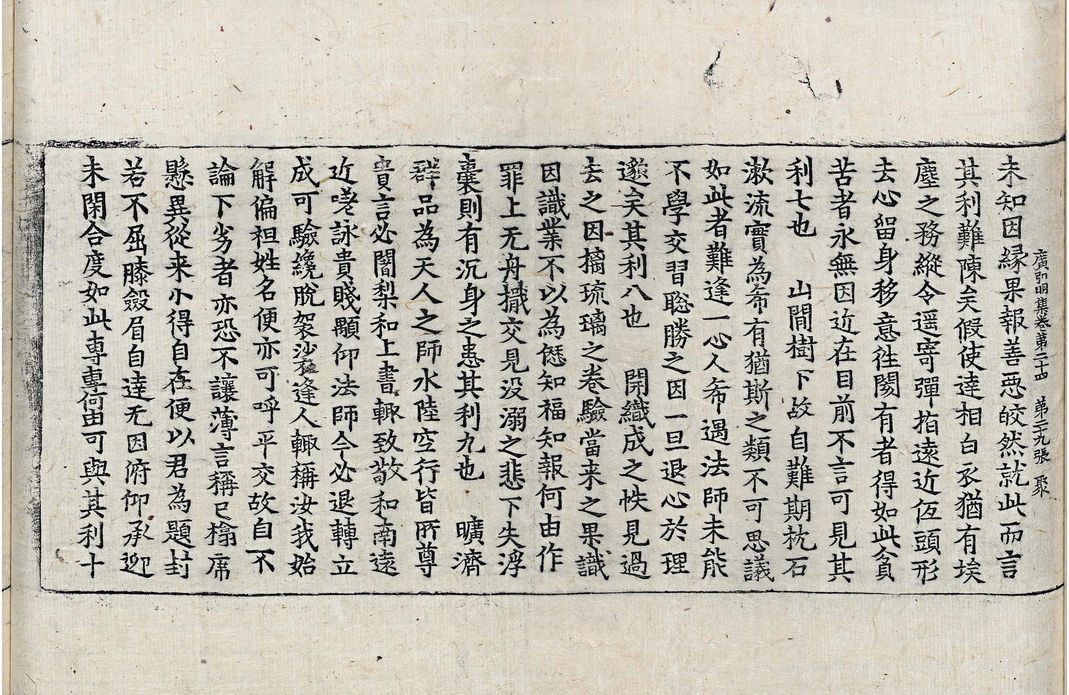 廣弘明集卷第二十四　第二十九張　聚
未知因縁果報善惡皎然就此而言
其利難陳矣假使達相白衣猶有埃
塵之務縱令遥寄彈指遠近仾頭形
去心留身移意徃闋有者得如此貧
苦者永無因近在目前不言可見其
利七也　山間樹下故自難期枕石
漱流實為希有猶斯之類不可思議
如此者難逢一心人希遇法師未能
不學交習聡勝之因一旦退心於理
邈矣其利八也　開織成之帙見過
去之因摛琉璃之卷驗當来之果識
因識業不以為𠎝知福知報何由作
罪上无舟檝交見没溺之悲下失浮
囊則有沉身之患其利九也　曠濟
群品為天人之師水陸空行皆所尊
貴言必闍梨和上書輙致敬和南遠
近嗟詠貴賤顒仰法師今必退轉立
成可驗纔脫袈裟逢人輙稱汝我始
解偏袒姓名便亦可呼平交故自不
論下劣者亦恐不讓薄言稱已榻席
懸異從来小得自在便以君為題封
若不屈膝斂眉自達无因俯仰承迎
未閑合度如此專專何由可與其利十